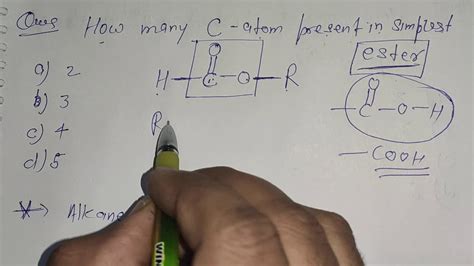 Ques How many C-atom present in simplest
ester
a) 2
b) 3
c) 4
d) 5
O
H-C-O-R
O
-C-O-H
-COOH
R
Alkane